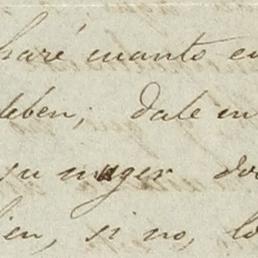 haré cuanto en
deben; dale un
su muger do
ien, si no, lo